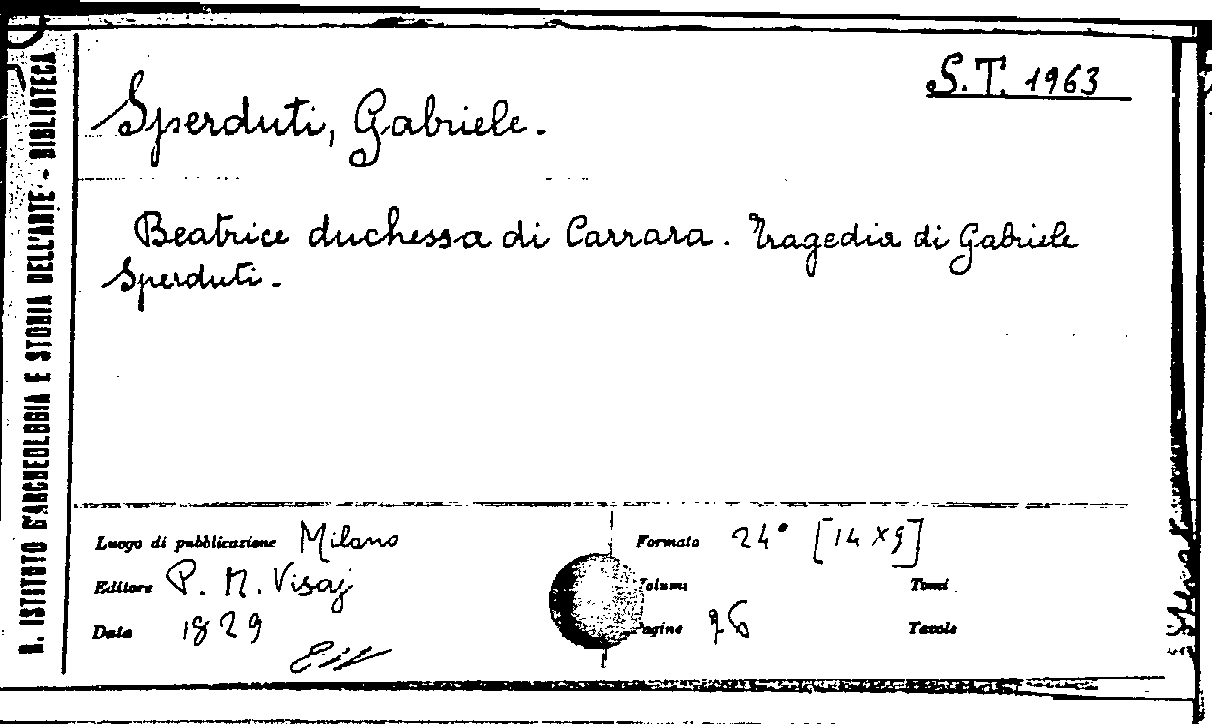 S.T. 1963
Sperduti, Gabriele.
Beatrice duchessa di Carrara. Tragedia di Gabriele
Sperduti.
R. ISTITUTO D'ARCHEOLOGIA E STORIA DELL'ARTE - BIBLIOTECA
Luogo di pubblicazione Milano
Editore P. M. Visaj
Data 1829
Formato 24° [14 x 9]
Volumi
Tomi
Pagine 96
Tavole